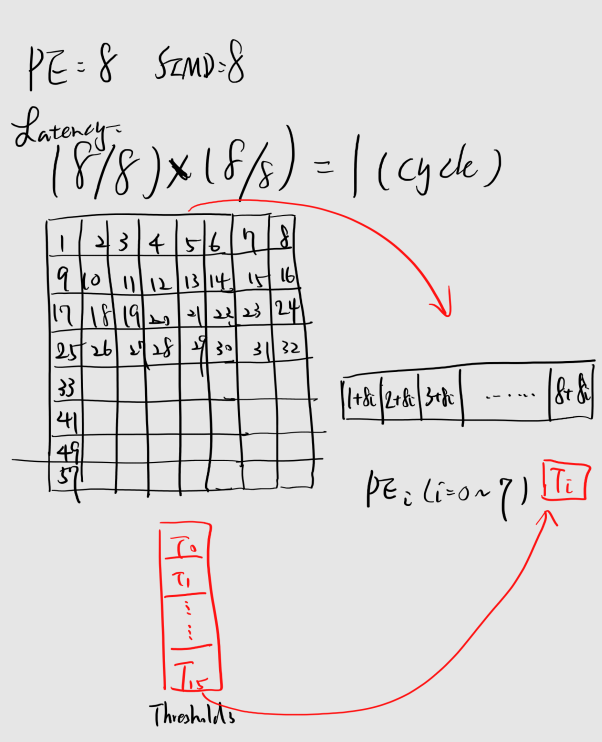 PE=8 SIMD=8
Latency=
(8/8)×(8/8)=1(cycle)
1 2 3 4 5 6 7 8
9 10 11 12 13 14 15 16
17 18 19 20 21 22 23 24
25 26 27 28 29 30 31 32
33
41
49
57
1+8i 2+8i 3+8i ...... 8+8i
PEi (i=0~7) Ti
T0
T1
⋮
⋮
T15
Thresholds